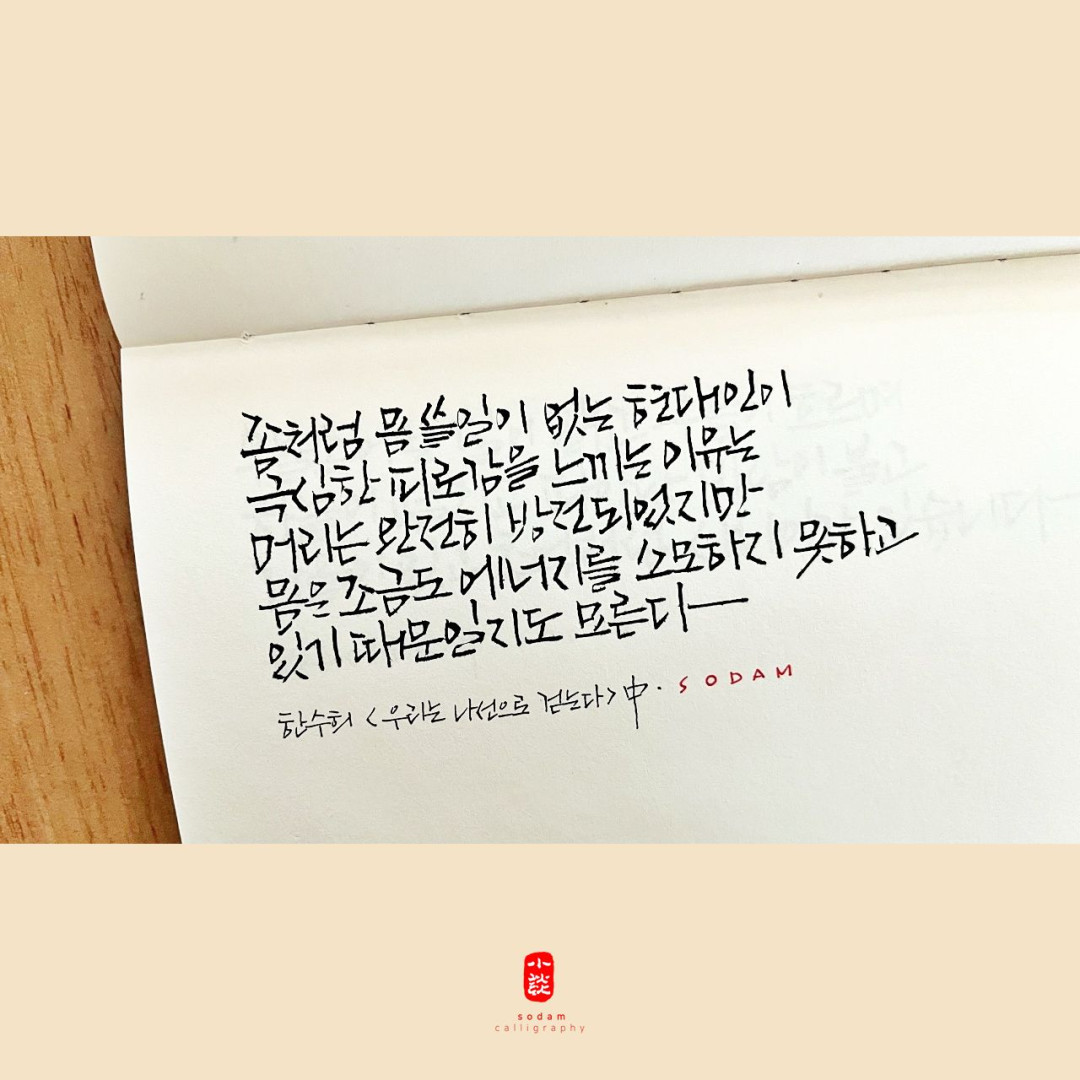 좀처럼 몸 쓸일이 없는 현대인이
극심한 피로감을 느끼는 이유는
머리는 완전히 방전되었지만
몸은 조금도 에너지를 소모하지 못하고
있기 때문일지도 모른다—
한수희 <우리는 나선으로 걷는다> 中 · SODAM
小談
sodam
calligraphy